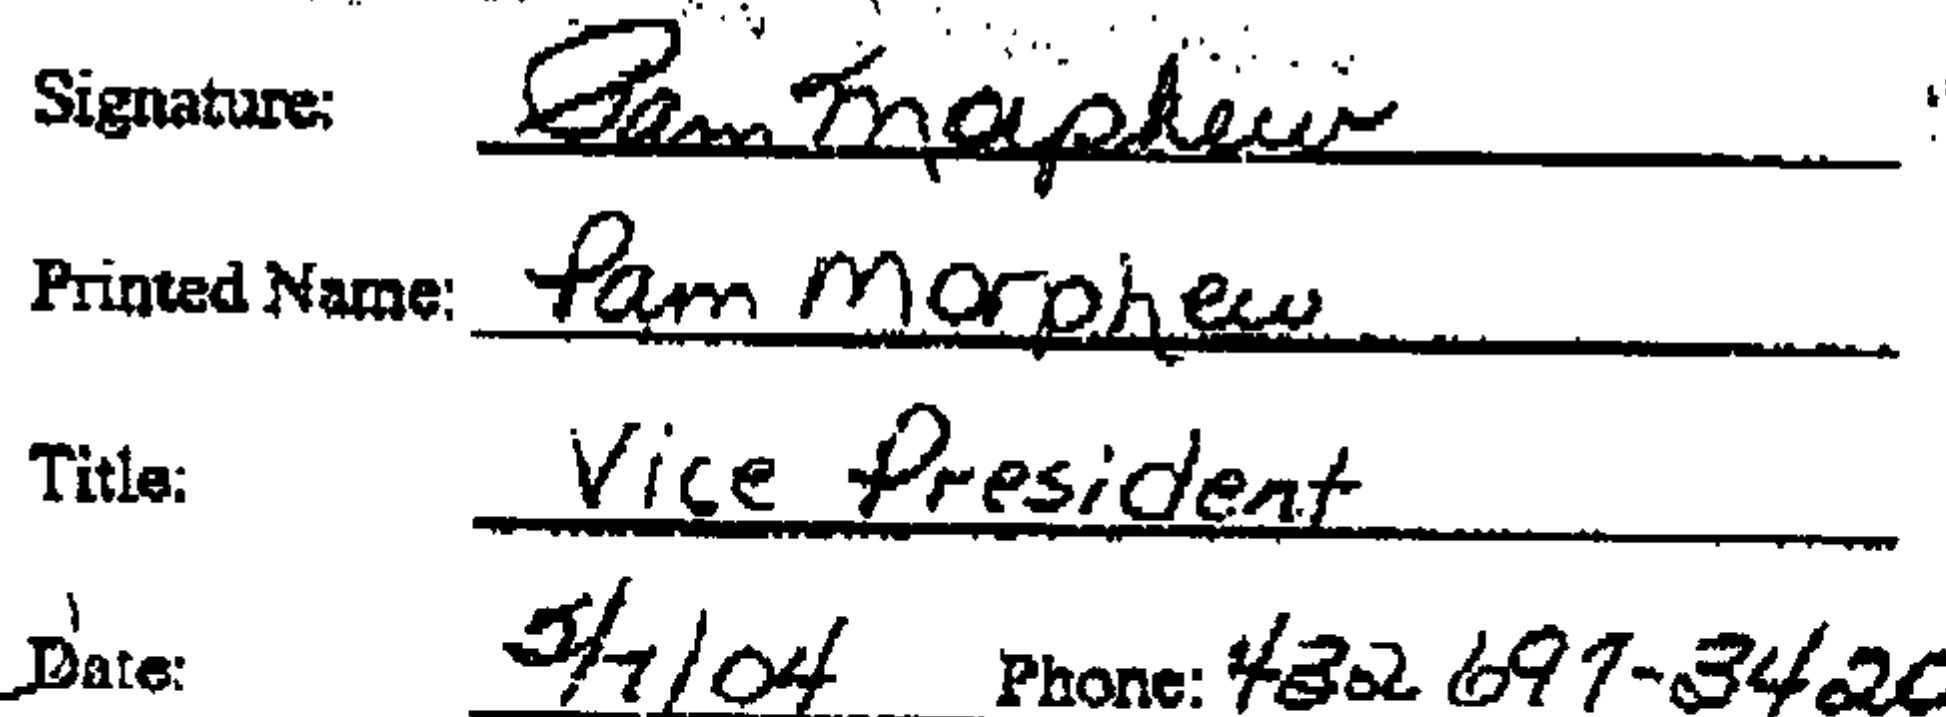 Signature: Pam Morphew
Printed Name: Pam Morphew
Title: Vice President
Date: 5/7/04 Phone: 432 697-3420